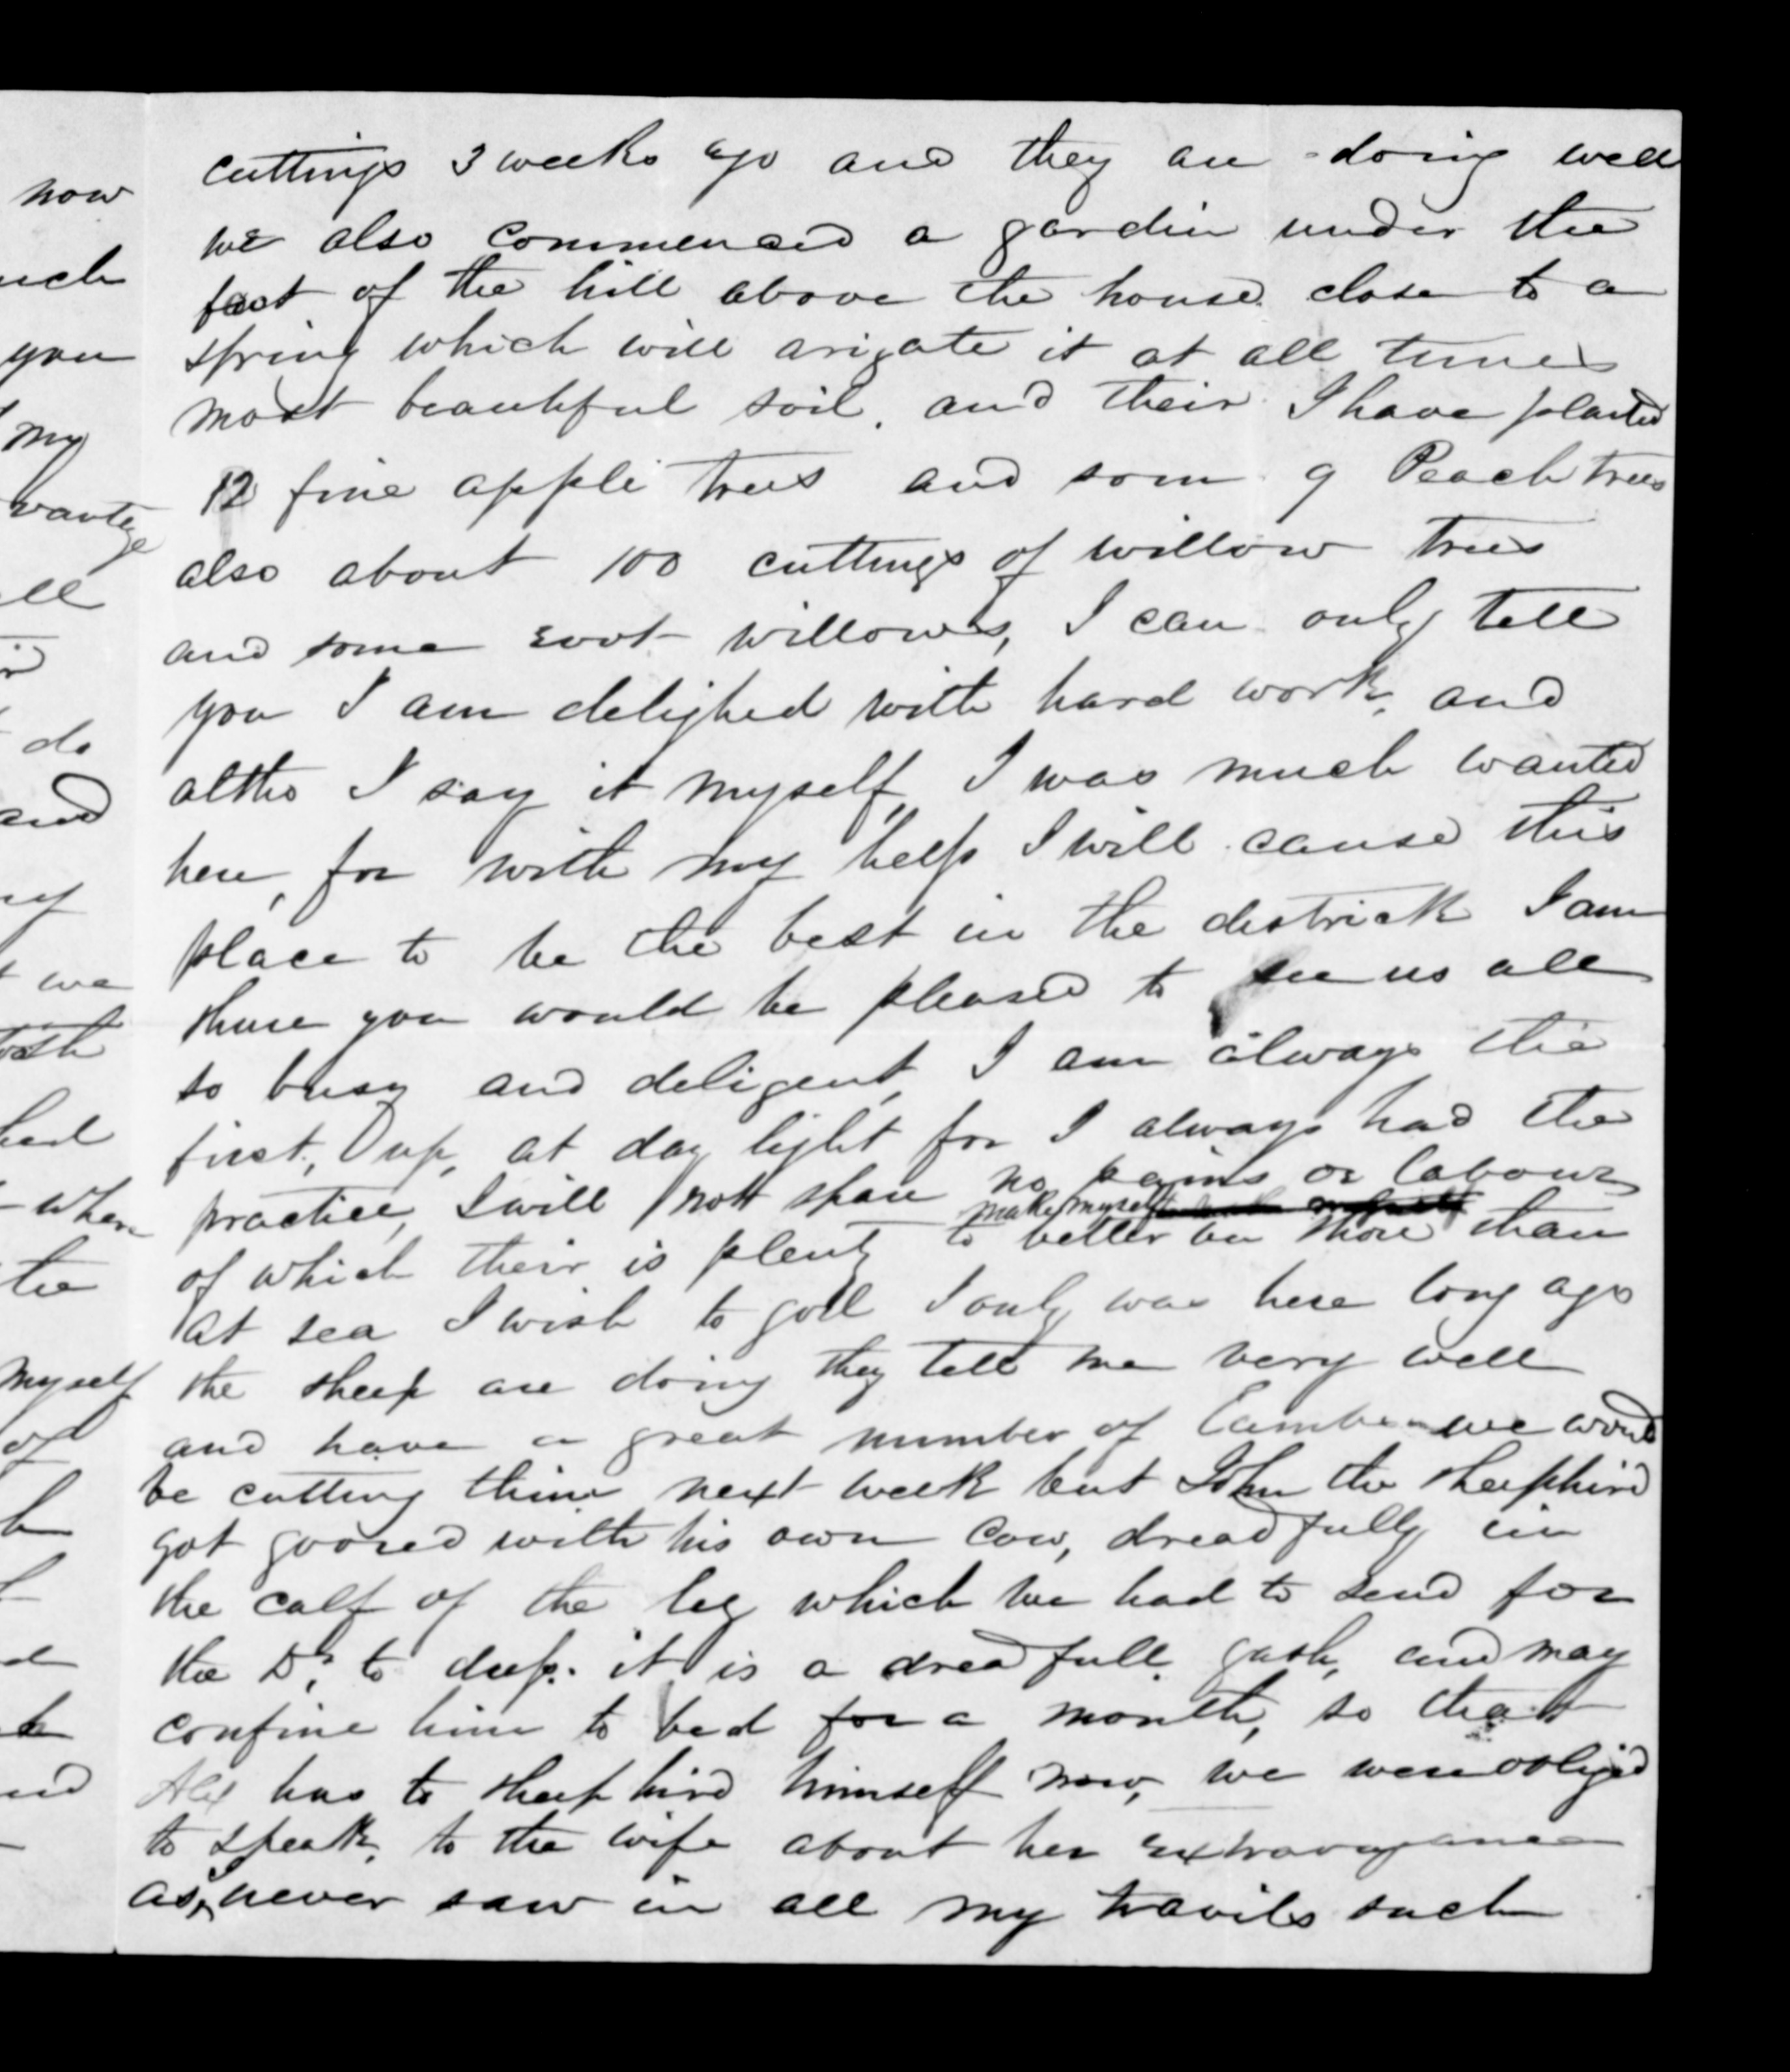 cuttings 3 weeks ago and they are doing well
we also commenced a gardin under the
foot of the hill above the house close to a
spring which will arigate it at all times
most beautiful soil. and their I have planted
12 fine appli trees and som 9 Peach trees
also about 100 cuttings of willow trees
and some root willows, I can only tell
you I am delighed with hard work, and
altho I say it myself, I was much wanted
here, for with my help I will cause this
place to be the best in the districk I am
shure you would be pleased to see us all
so busy and deligent, I am always the
first, up, at day light for I always had the
practice, I will nott spare no pains or labour
make myself
of which their is plenty to better on shore than
at sea I wish to god I only was here long ago
the sheep are doing they tell me very well
and have a great number of lambs we would
be cutting thim next week but John the sheephird
got goored with his own cow, dreadfully in
the calf of the leg which we had to send for
the Dr, to deep. it is a dreadfull gash, and may
confine him to bed for a month, so that
Alex has to sheep hird himself now, we were obliged
to speak, to the wife about her extravagance
as I never saw in all my travils such
now
you
my
vantge
do
and
we
had
when
the
myself
of